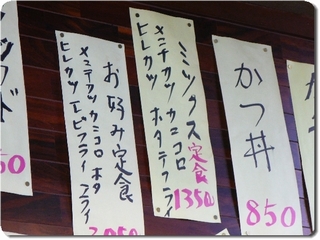 かつ丼
850
ミックス定食
メンチカツ カニコロ
ヒレカツ ホタテフライ
1350
お好み定食
メンチカツ カニコロ ホタ
ヒレカツ エビフライ フライ
50